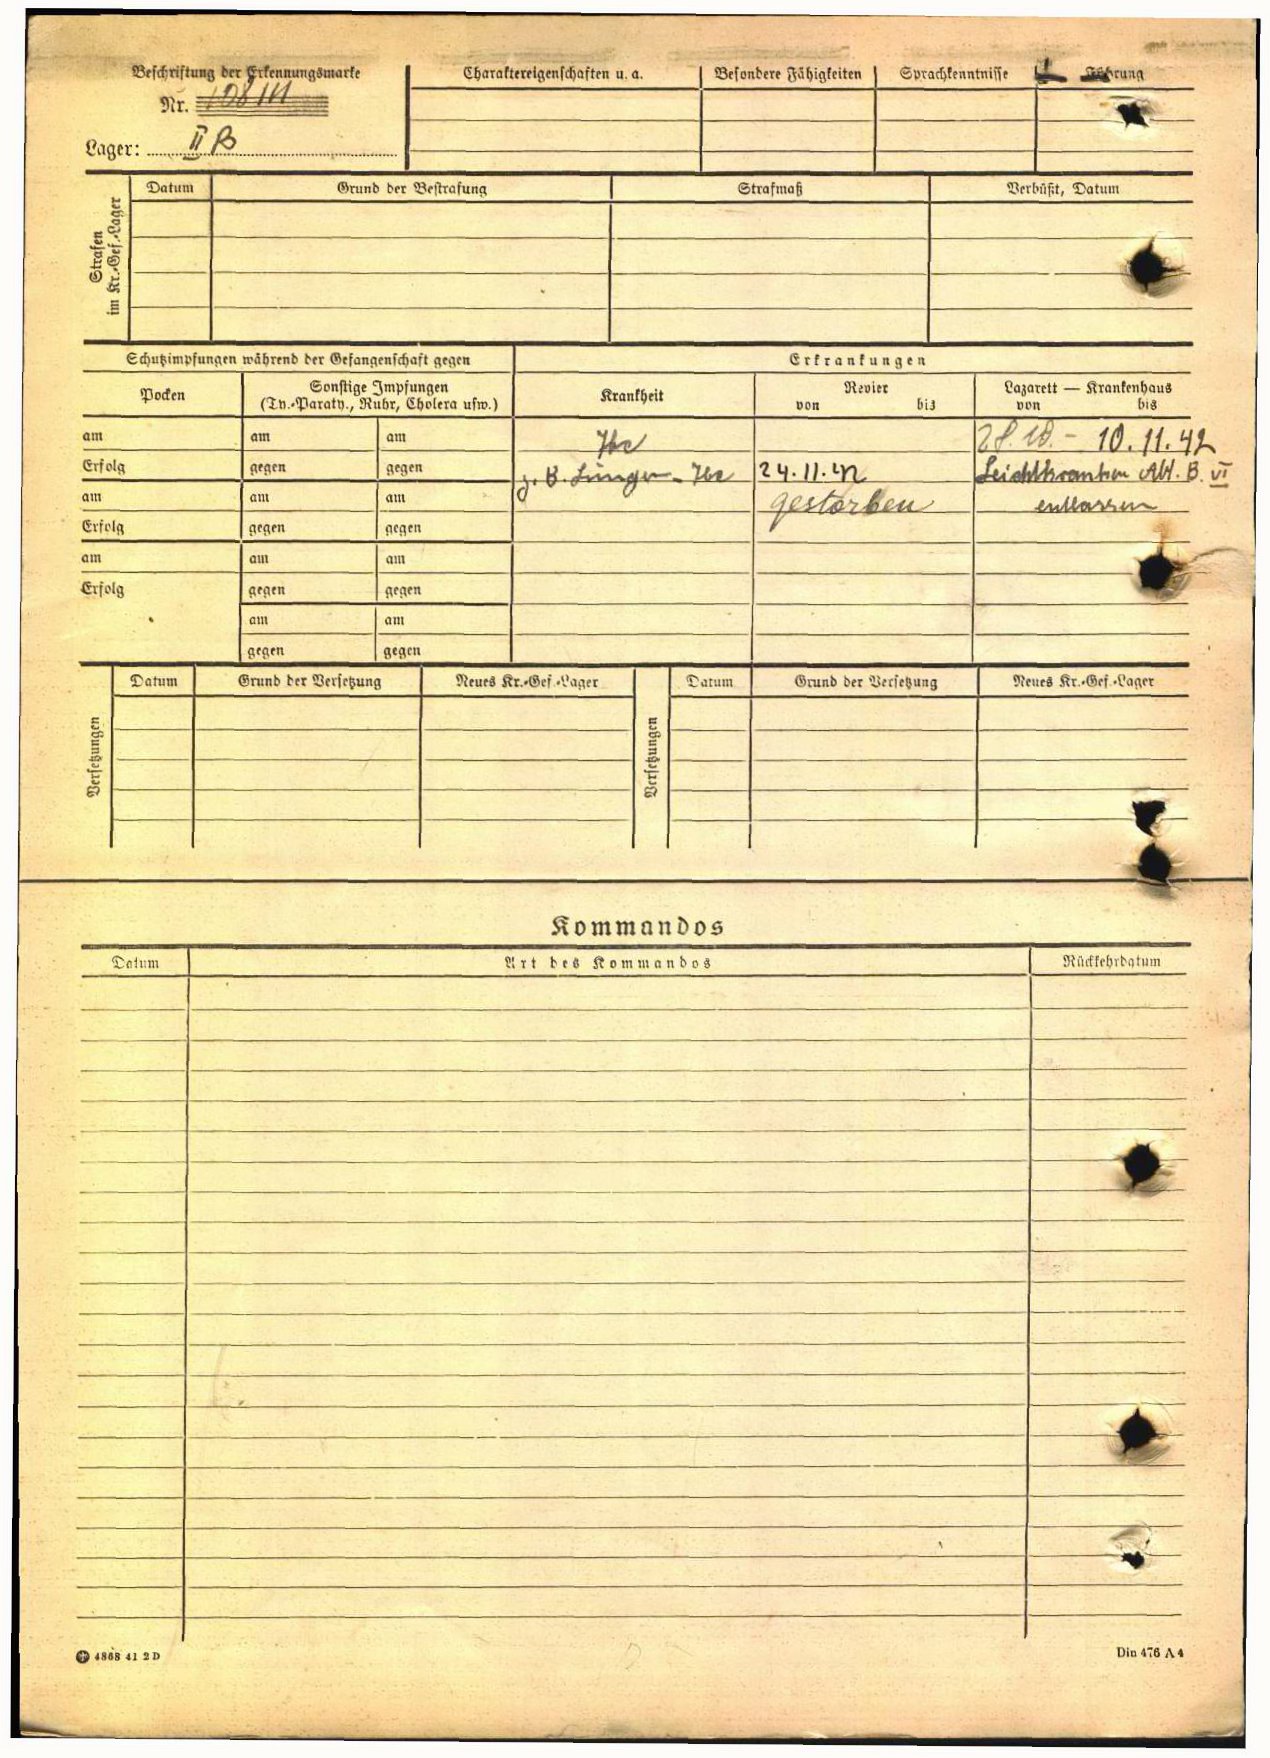 Beschriftung der Erkennungsmarke
Nr.
Lager: II B
Charaktereigenschaften u. a.
Besondere Fähigkeiten
Sprachkenntnisse
Führung
Strafen
im Kr.-Gef.-Lager
Datum
Grund der Bestrafung
Strafmaß
Verbüßt, Datum
Schutzimpfungen während der Gefangenschaft gegen
Erkrankungen
Pocken
Sonstige Impfungen
(Ty.-Paraty., Ruhr, Cholera usw.)
Krankheit
Revier
von bis
Lazarett — Krankenhaus
von bis
am am am Tbc 28.10. - 10.11.42
Erfolg gegen gegen Lungen-Tbc 24.11.42 Leichtkranken Abt. B. VI
am am am gestorben entlassen
Erfolg gegen gegen
am am am
Erfolg gegen gegen
am am
gegen gegen
Versetzungen
Datum
Grund der Versetzung
Neues Kr.-Gef.-Lager
Versetzungen
Datum
Grund der Versetzung
Neues Kr.-Gef.-Lager
Kommandos
Datum
Art des Kommandos
Rückkehrdatum
4868 41 2 D
Din 476 A 4